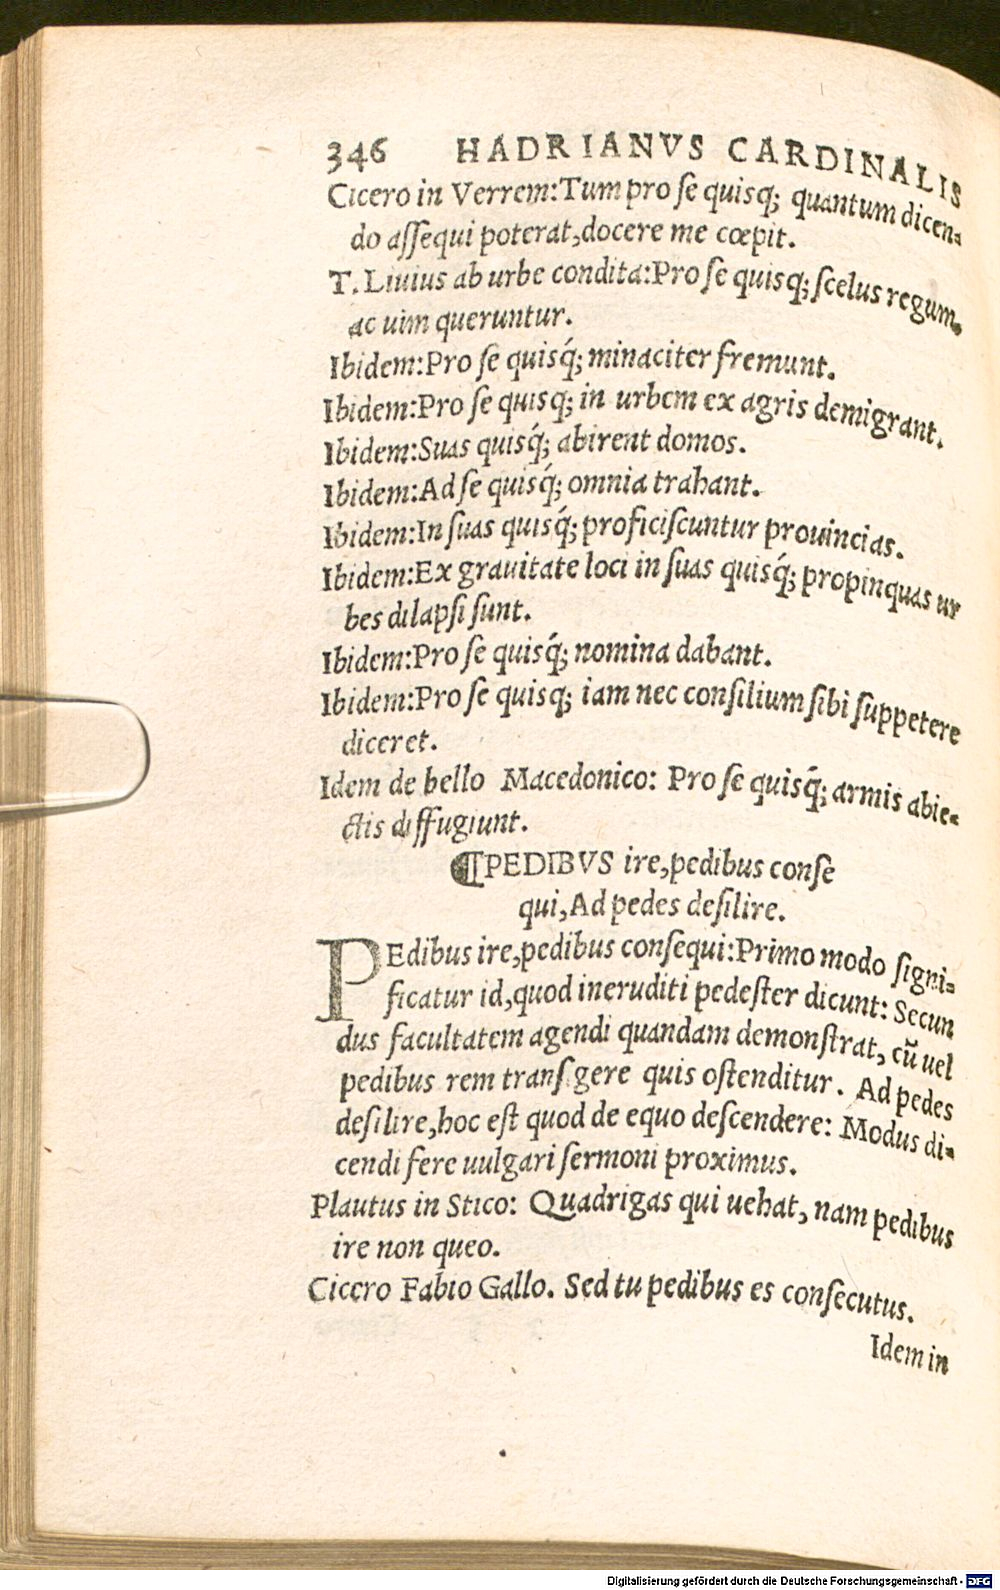 346 HADRIANVS CARDINALIS
Cicero in Verrem:Tum pro ſe quisq; quantum dicen-
do aſſequi poterat,docere me cœpit.
T. Liuius ab urbe condita:Pro ſe quisq; ſcelus regum,
ac uim queruntur.
Ibidem:Pro ſe quisq́; minaciter fremunt.
Ibidem:Pro ſe quisq; in urbem ex agris demigrant.
Ibidem:Suas quisq́; abirent domos.
Ibidem:Ad ſe quisq́; omnia trahant.
Ibidem:In ſuas quisq́; proficiſcuntur prouincias.
Ibidem:Ex grauitate loci in ſuas quisq́; propinquas ur
bes dilapſi ſunt.
Ibidem:Pro ſe quisq́; nomina dabant.
Ibidem:Pro ſe quisq; iam nec conſilium ſibi ſuppetere
diceret.
Idem de bello Macedonico: Pro ſe quisq́; armis abie-
ctis diffugiunt.
¶PEDIBVS ire,pedibus conſe
qui,Ad pedes deſilire.
PEdibus ire,pedibus conſequi:Primo modo ſigni-
ficatur id,quod ineruditi pedeſter dicunt: Secun
dus facultatem agendi quandam demonſtrat, cũ uel
pedibus rem tranſgere quis oſtenditur. Ad pedes
deſilire,hoc eſt quod de equo deſcendere: Modus di-
cendi fere uulgari ſermoni proximus.
Plautus in Stico: Quadrigas qui uehat, nam pedibus
ire non queo.
Cicero Fabio Gallo. Sed tu pedibus es conſecutus.
Idem in
Digitalisierung gefördert durch die Deutsche Forschungsgemeinschaft - DFG